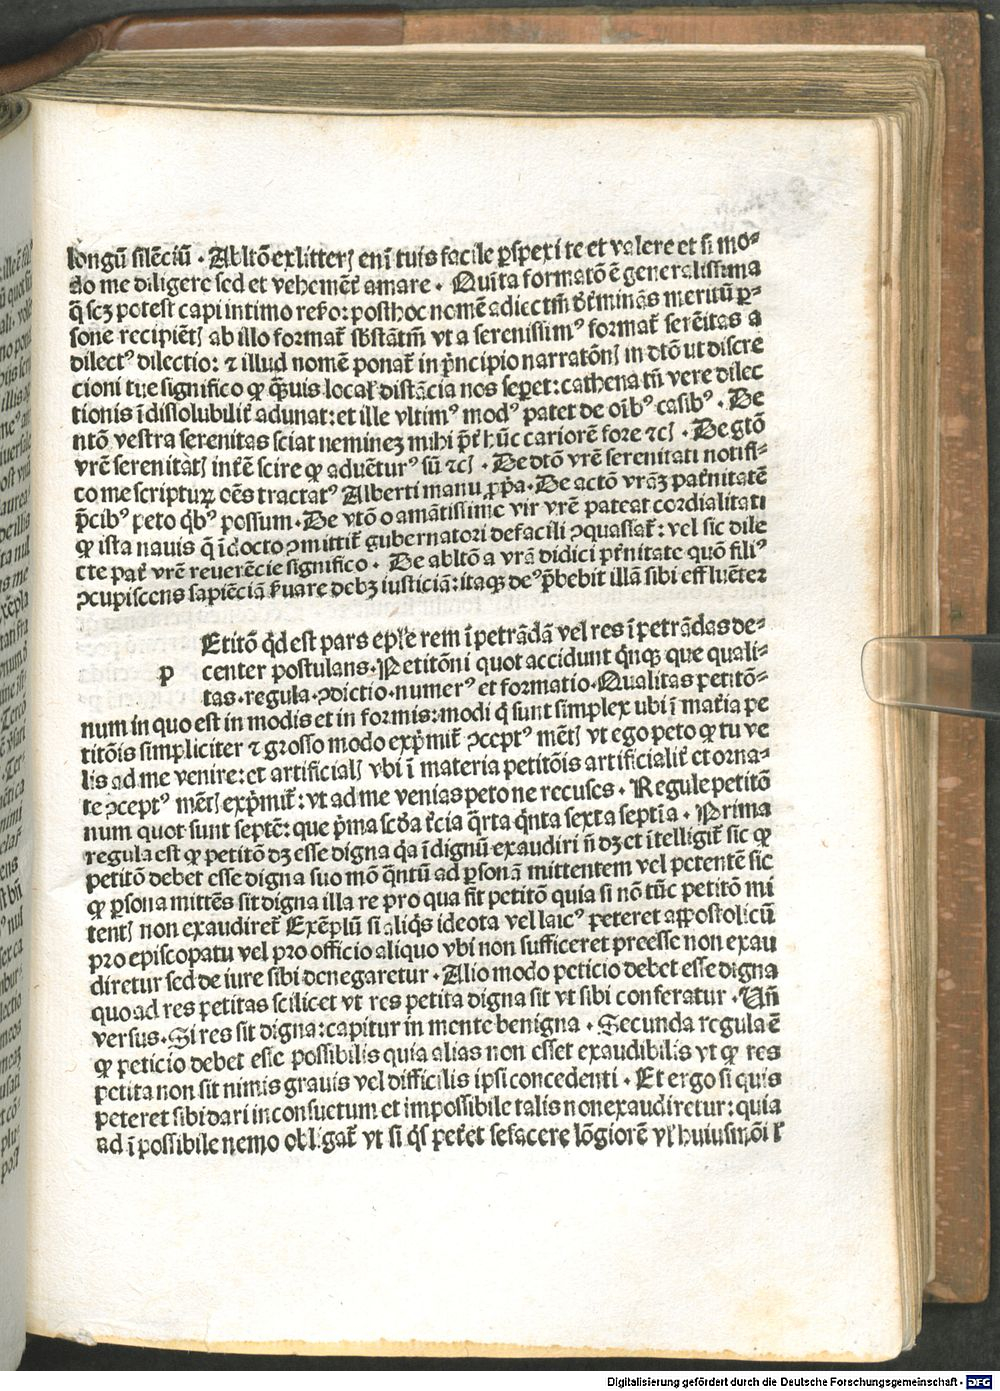 longū silēciū · Ablatō ex litterꝭ enī tuis facile ꝑspexi te et valere et si mo-
do me diligere sed et vehemēt̄ amare · Quīta formatō ē generalissima
q̄ scꝫ potest capi intimo reſo: posthoc nomē adiectm̄ dt̄minās meritū ꝑ-
sone recipiētꝭ ab illo format̄ sb̄stātm̄ vt a serenissimꝰ format̄ serēitas a
dilectꝰ dilectio: ⁊ illud nomē ponat̄ in p̄ncipio narratōnꝭ in dtō ut discre
cioni tue significo ꝙ q̄̄uis local̄ distācia nos seꝑet: cathena tn̄ vere dilec
tionis īdissolubilit̄ adunat: et ille vltimꝰ modꝰ patet de oībꝰ casibꝰ · De
ntō vestra serenitas sciat nemineꝫ mihi p̄t̄ hūc cariorē fore ⁊cꝭ · De gtō
vrē serenitatꝭ int̄ē scire ꝙ aduēturꝰ sū ⁊cꝭ · De dtō vrē serenitati notifi-
co me scripturꝝ oēs tractatꝰ Alberti manu ꝓp̄a · De actō vrāꝫ pat̄nitatē
p̄cibꝰ peto qb̄ꝰ possum · De vtō o amātissime vir vrē pateat cordialitati
ꝙ ista nauis q̄ īdocto ꝯmittit̄ gubernatori defacili ꝯquassat̄: vel sic dile
cte pat̄ vrē reuerēcie significo · De abltō a vrā didici pt̄nitate quō filiꝰ
ꝯcupiscens sapiēciā ẜuare debꝫ iusticiā: itaqꝫ deꝰ p̄bebit illā sibi effluēter
Etitō qd̄ est pars ep̄le rem īpetrādā vel res īpetrādas de-
p center postulans · Petitōni quot accidunt qn̄qꝫ que quali-
tas · regula · ꝯdictio · numerꝰ et formatio · Qualitas petitō-
num in quo est in modis et in formis: modi q̄ sunt simplex ubi ī mat̄ia pe
titōis simpliciter ⁊ grosso modo exp̄mit̄ ꝯceptꝰ mētꝭ vt ego peto ꝙ tu ve
lis ad me venire: et artificialꝭ vbi ī materia petitōis artificialit̄ et orna-
te ꝯceptꝰ mētꝭ exp̄mit̄: vt ad me venias peto ne recuses · Regule petitō
num quot sunt septē: que p̄ma scd̄a t̄cia q̄rta q̄nta sexta septīa · Prima
regula est ꝙ petitō dꝫ esse digna q̄a īdignū exaudiri n̄ dꝫ et ītelligit̄ sic ꝙ
petitō debet esse digna suo mō q̄ntū ad ꝑsonā mittentem vel petentē sic
ꝙ ꝑsona mittēs sit digna illa re pro qua fit petitō quia si nō tūc petitō mi
tentꝭ non exaudiret̄ Exēplū si aliq̄s ideota vel laicꝰ peteret appostolicū
pro episcopatu vel pro officio aliquo vbi non sufficeret preesse non exau
diretur sed de iure sibi denegaretur · Alio modo peticio debet esse digna
quo ad res petitas scilicet vt res petita digna sit vt sibi conferatur · Un̄
versus · Si res sit digna: capitur in mente benigna · Secunda regula ē
ꝙ peticio debet esse possibilis quia alias non esset exaudibilis vt ꝙ res
petita non sit nimis grauis vel difficilis ipsi concedenti · Et ergo si quis
peteret sibi dari inconsuetum et impossibile talis non exaudiretur: quia
ad īpossibile nemo obligat̄ vt si q̄s pet̄et se facere lōgiorē vl̄ huiusmōi
Digitalisierung gefördert durch die Deutsche Forschungsgemeinschaft - DFG